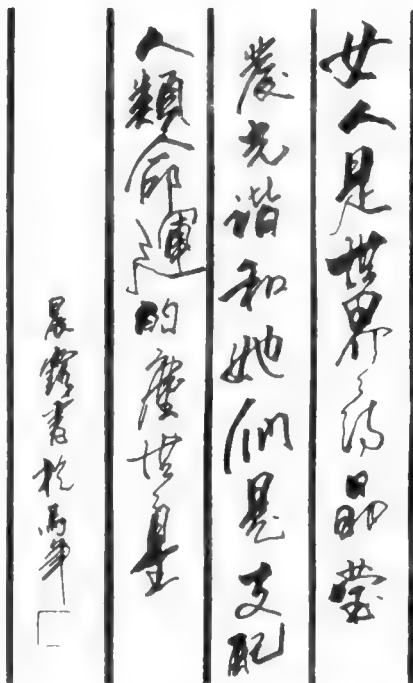 女人是世界的晶莹
發光谐和她们是支配
人類命運的塵世星
晨露書於馬年